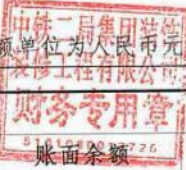 中铁二局集团装饰
额单位为人民币元
装修工程有限公司
财务专用章
账面余额